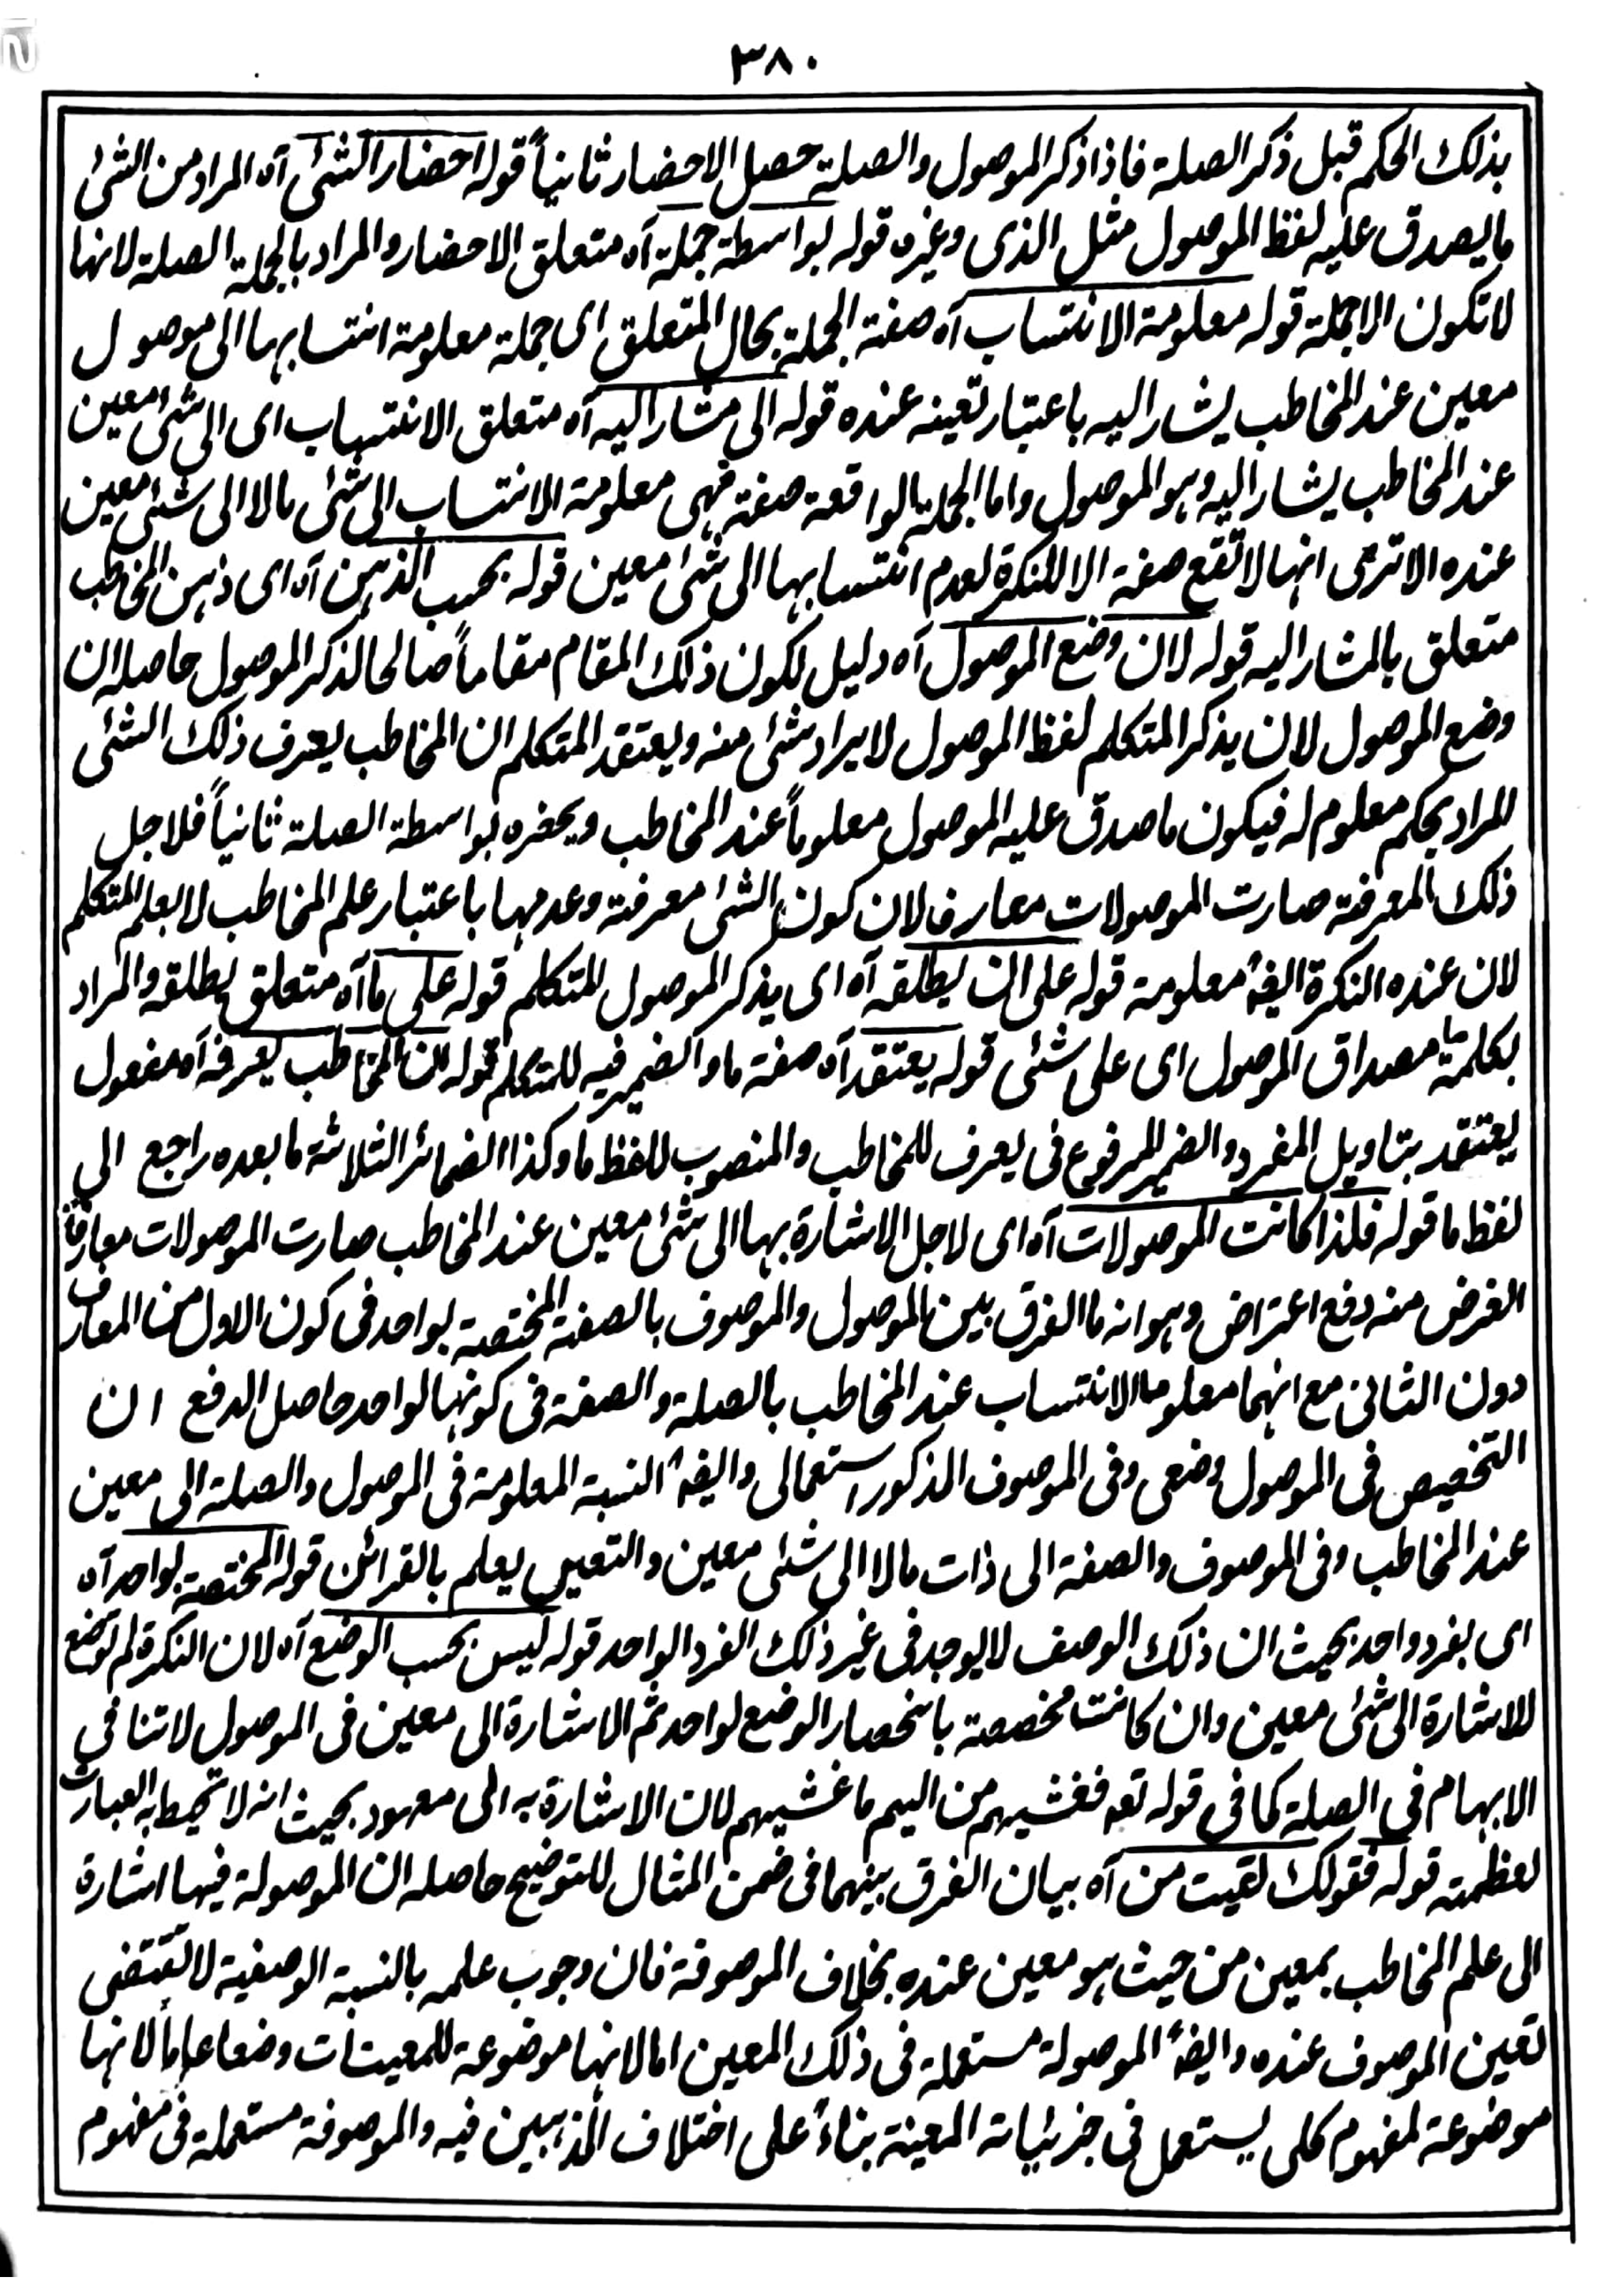 ٣٨٠
بذلك الحكم قبل ذكر الصلة فاذا ذكر الموصول والصلة حصل الاحضار ثانياً قوله احضار الشئ آه المراد من الشئ
ما يصدق عليه لفظ الموصول مثل الذى وغيره قوله بواسطة جملة آه متعلق الاحضار والمراد بالجملة الصلة لانها
لا تكون الا جملة قوله معلومة الانتساب آه صفة الجملة بحال المتعلق اى جملة معلومة انتسابها الى موصول
معين عند المخاطب يشار اليه باعتبار تعينه عنده قوله الى مشار اليه آه متعلق الانتساب اى الى شئ معين
عند المخاطب يشار اليه وهو الموصول واما الجملة الواقعة صفة فهى معلومة الانتساب الى شئ ما لا الى شئ معين
عنده الا ترى انها لا تقع صفة الا للنكرة لعدم انتسابها الى شئ معين قوله بحسب الذهن آه اى ذهن المخاطب
متعلق بالمشار اليه قوله لان وضع الموصول آه دليل لكون ذلك المقام مقاماً صالحا لذكر الموصول حاصله ان
وضع الموصول لان يذكر المتكلم لفظ الموصول لايراد شئ منه ويعتقد المتكلم ان المخاطب يعرف ذلك الشئ
المراد بحكم معلوم له فيكون ما صدق عليه الموصول معلوماً عند المخاطب ويحضره بواسطة الصلة ثانياً فلاجل
ذلك المعرفة صارت الموصولات معارف لان كون الشئ معرفة وعدمها باعتبار علم المخاطب لا بعلم المتكلم
لان عنده النكرة ايضاً معلومة قوله على ان يطلقه آه اى يذكر الموصول المتكلم قوله على ما آه متعلق يطلقه والمراد
بكلمة ما مصداق الموصول اى على شئ قوله يعتقد آه صفة ما والضمير فيه للمتكلم قوله ان المخاطب يعرفه آه مفعول
يعتقد بتاويل المفرد والضمير المرفوع فى يعرف للمخاطب والمنصوب للفظ ما وكذا الضمائر الثلاثة ما بعده راجع الى
لفظ ما قوله فلذا كانت الموصولات آه اى لاجل الاشارة بها الى شئ معين عند المخاطب صارت الموصولات معارفاً
الغرض منه دفع اعتراض وهو انه ما الفرق بين الموصول والموصوف بالصفة المختصة بواحد فى كون الاول من المعارف
دون الثانى مع انهما معلوما الانتساب عند المخاطب بالصلة والصفة فى كونها لواحد حاصل الدفع ان
التخصيص فى الموصول وضعى وفى الموصوف المذكور استعمالى وايضاً النسبة المعلومة فى الموصول والصلة الى معين
عند المخاطب وفى الموصوف والصفة الى ذات ما لا الى شئ معين والتعيين يعلم بالقرائن قوله المختصة بواحد آه
اى بفرد واحد بحيث ان ذلك الوصف لا يوجد فى غير ذلك الفرد الواحد قوله ليس بحسب الوضع آه لان النكرة لم توضع
للاشارة الى شئ معين وان كانت مخصصة بانحصار الوضع لواحد ثم الاشارة الى معين فى الموصول لا تنافى
الابهام فى الصلة كما فى قوله تعه فغشيهم من اليم ما غشيهم لان الاشارة به الى معهود بحيث انه لا تحيط به العبارت
لعظمته قوله فقولك لقيت من آه بيان الفرق بينهما فى ضمن المثال للتوضيح حاصله ان الموصولة فيها اشارة
الى علم المخاطب بمعين من حيث هو معين عنده بخلاف الموصوفة فان وجوب علمه بالنسبة الوصفية لا تقتضى
تعين الموصوف عنده وايضاً الموصولة مستعملة فى ذلك المعين اما لانها موضوعة للمعينات وضعا عاماً لا انها
موضوعة لمفهوم كلى يستعمل فى جزئياته المعينة بناءً على اختلاف المذهبين فيه والموصوفة مستعملة فى مفهوم